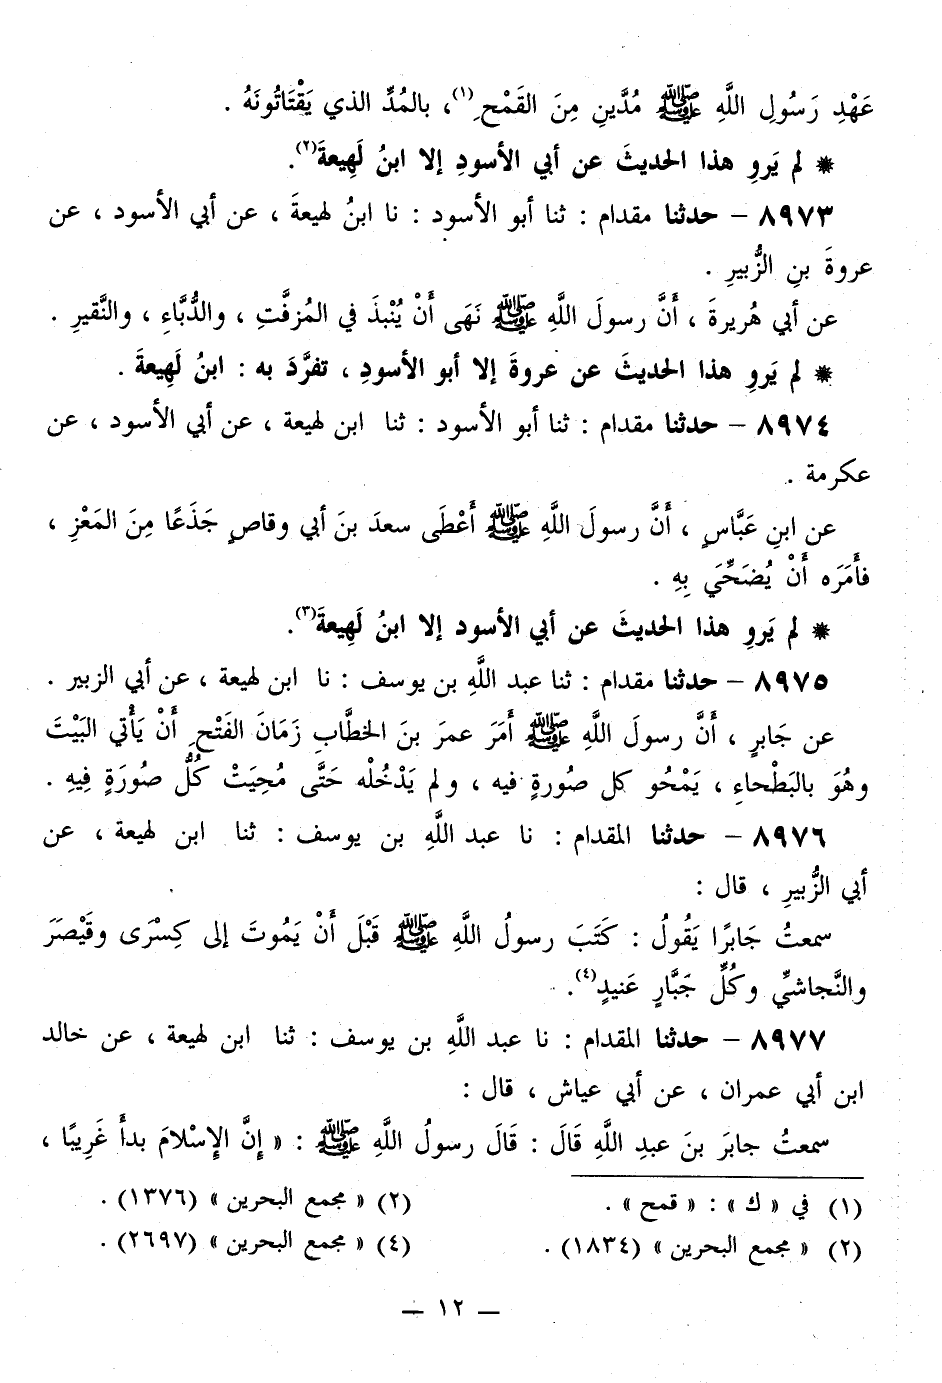 عَهْدِ رَسُولِ اللَّهِ ﷺ مُدَّينِ مِنَ القَمْحِ(١)، بالمُدِّ الذي يَقْتَاتُونَهُ .
* لم يَروِ هذا الحديثَ عن أبي الأسودِ إلا ابنُ لَهِيعةَ(٢).
٨٩٧٣ – حدثنا مقدام : ثنا أبو الأسود : نا ابنُ لهيعةَ ، عن أبي الأسود ، عن
عروةَ بنِ الزُّبيرِ .
عن أبي هُريرةَ ، أَنَّ رسولَ اللَّهِ ﷺ نَهَى أَنْ يُنْبذَ في المُزفَّتِ ، والدُّبَّاءِ ، والنَّقيرِ .
* لم يَروِ هذا الحديثَ عن عروةَ إلا أبو الأسودِ ، تفرَّدَ به : ابنُ لَهِيعةَ .
٨٩٧٤ – حدثنا مقدام : ثنا أبو الأسود : ثنا ابن لهيعة ، عن أبي الأسود ، عن
عكرمة .
عن ابنِ عَبَّاسٍ ، أَنَّ رسولَ اللَّهِ ﷺ أَعْطَى سعدَ بنَ أبي وقاصٍ جَذَعًا مِنَ المَعْزِ ،
فأَمَرَه أَنْ يُضَحِّيَ بِهِ .
* لم يَروِ هذا الحديثَ عن أبي الأسود إلا ابنُ لَهِيعةَ(٣).
٨٩٧٥ – حدثنا مقدام : ثنا عبد اللَّه بن يوسف : نا ابن لهيعة ، عن أبي الزبير .
عن جَابرٍ ، أَنَّ رسولَ اللَّهِ ﷺ أَمَرَ عمرَ بنَ الخطَّابِ زَمَانَ الفَتْحِ أَنْ يَأْتي البَيْتَ
وهُوَ بالبَطْحاءِ ، يَمْحُو كل صُورةٍ فيه ، ولم يَدْخُلْه حَتَّى مُحِيَتْ كُلُّ صُورَةٍ فِيهِ .
٨٩٧٦ – حدثنا المقدام : نا عبد اللَّهِ بن يوسف : ثنا ابن لهيعة ، عن
أبي الزُّبيرِ ، قال :
سمعتُ جَابرًا يَقُولُ : كَتَبَ رسولُ اللَّهِ ﷺ قَبْلَ أَنْ يَمُوتَ إلى كِسْرَى وقَيْصَرَ
والنَّجاشيِّ وكُلِّ جَبَّارٍ عَنيدٍ(٤).
٨٩٧٧ – حدثنا المقدام : نا عبد اللَّهِ بن يوسف : ثنا ابن لهيعة ، عن خالد
ابن أبي عمران ، عن أبي عياش ، قال :
سمعتُ جابرَ بنَ عبدِ اللَّهِ قَالَ : قَالَ رسولُ اللَّهِ ﷺ : « إِنَّ الإِسْلامَ بدأَ غَرِيبًا ،
(١) في « ك » : « قمح » .
(٢) « مجمع البحرين » (١٣٧٦) .
(٢) « مجمع البحرين » (١٨٣٤) .
(٤) « مجمع البحرين » (٢٦٩٧) .
— ١٢ —